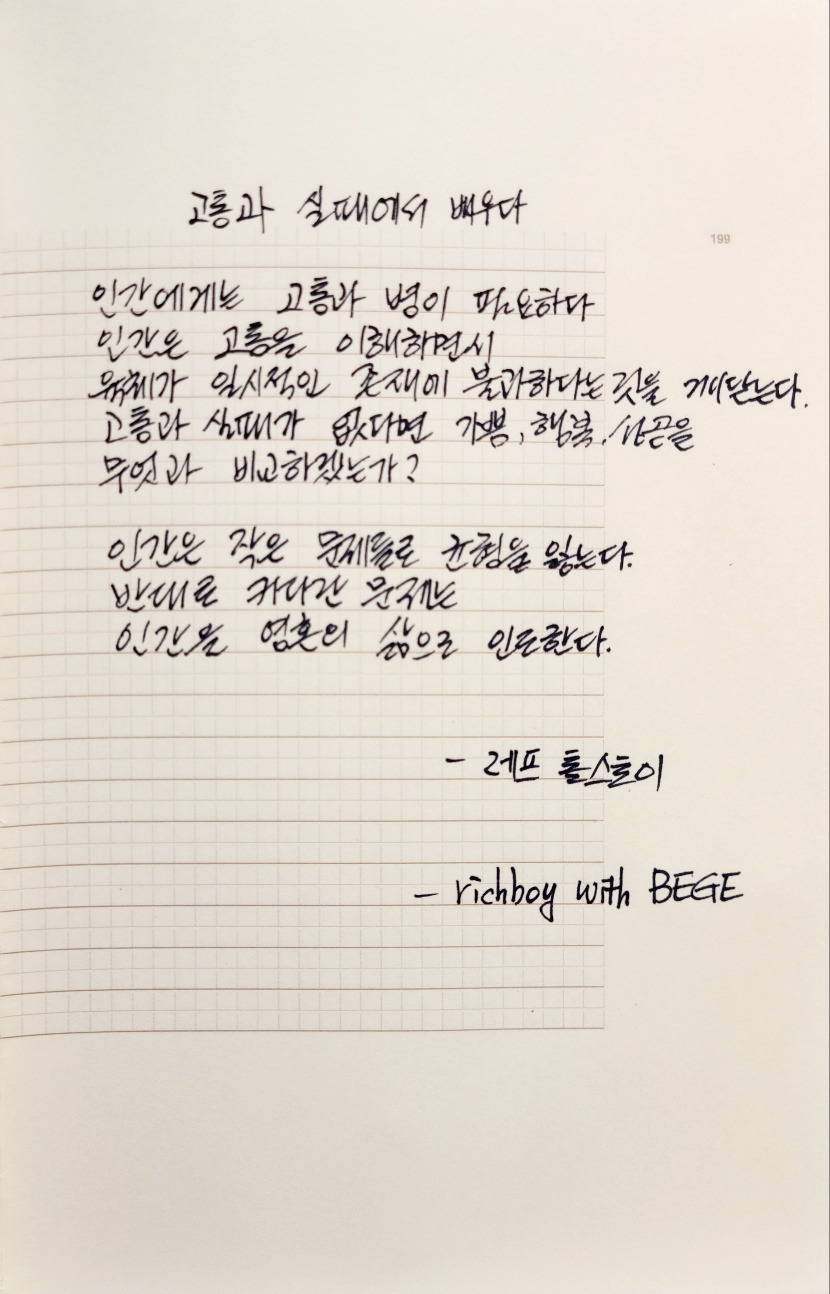 고통과 실패에서 배우다
199
인간에게는 고통과 병이 필요하다
인간은 고통을 이해하면서
육체가 일시적인 존재에 불과하다는 것을 깨닫는다.
고통과 실패가 없다면 기쁨, 행복, 성공을
무엇과 비교하겠는가?
인간은 작은 문제들로 균형을 잃는다.
반대로 커다란 문제는
인간을 영혼의 삶으로 인도한다.
- 레프 톨스토이
- richboy with BEGE